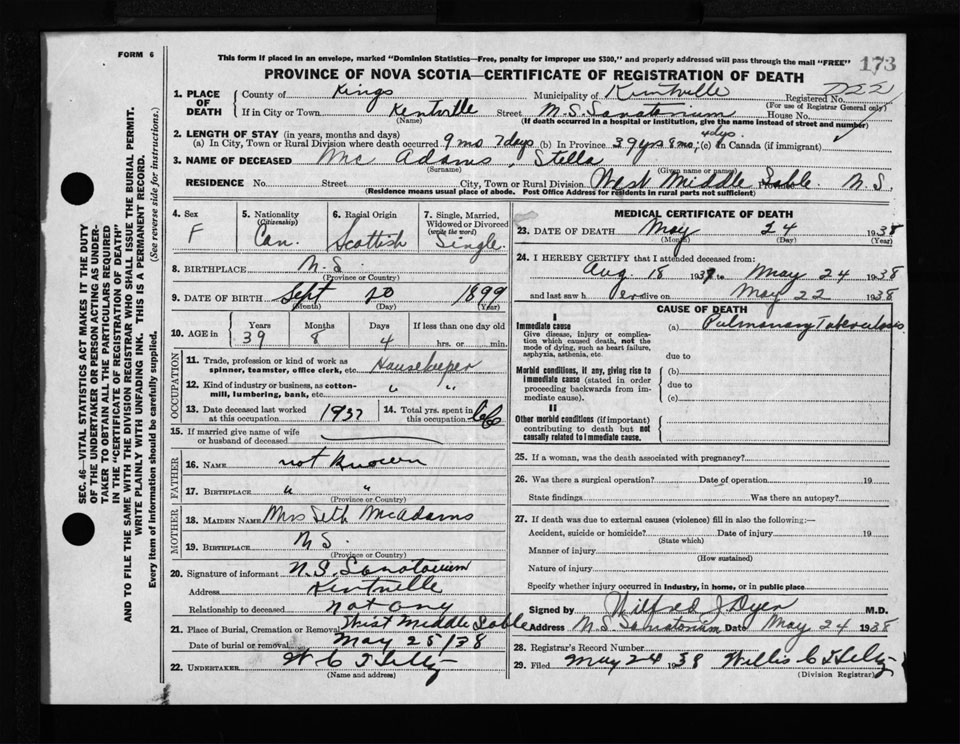 FORM 6
This form if placed in an envelope, marked "Dominion Statistics—Free, penalty for improper use $300," and properly addressed will pass through the mail "FREE"
173
PROVINCE OF NOVA SCOTIA—CERTIFICATE OF REGISTRATION OF DEATH
1. PLACE OF DEATH
County of Kings Municipality of Kentville Registered No. D22
(For use of Registrar General only)
If in City or Town Kentville Street N.S. Sanatorium House No.
(Name) (If death occurred in a hospital or institution, give the name instead of street and number)
2. LENGTH OF STAY (in years, months and days)
(a) In City, Town or Rural Division where death occurred 9 mo 7 days (b) In Province 39 yrs 8 mo 4 dys. (c) In Canada (if immigrant)
3. NAME OF DECEASED Mc Adams, Stella
(Surname) (Given name or names)
RESIDENCE No. Street City, Town or Rural Division West Middle Sable Province N.S.
(Residence means usual place of abode. Post Office Address for residents in rural parts not sufficient)
4. Sex F
5. Nationality (Citizenship) Can.
6. Racial Origin Scottish
7. Single, Married, Widowed or Divorced (write the word) Single
8. BIRTHPLACE N.S.
(Province or Country)
9. DATE OF BIRTH Sept 20 1899
(Month) (Day) (Year)
10. AGE in Years 39 Months 8 Days 4 If less than one day old hrs. or min.
OCCUPATION
11. Trade, profession or kind of work as spinner, teamster, office clerk, etc. Housekeeper
12. Kind of industry or business, as cotton-mill, lumbering, bank, etc. " "
13. Date deceased last worked at this occupation 1937
14. Total yrs. spent in this occupation
15. If married give name of wife or husband of deceased
FATHER
16. NAME not known
17. BIRTHPLACE " "
(Province or Country)
MOTHER
18. MAIDEN NAME Mrs Seth McAdams
19. BIRTHPLACE N.S.
(Province or Country)
20. Signature of informant N.S. Sanatorium
Address Kentville
Relationship to deceased not any
21. Place of Burial, Cremation or Removal West Middle Sable
Date of burial or removal May 25/38
22. UNDERTAKER W C
(Name and address)
MEDICAL CERTIFICATE OF DEATH
23. DATE OF DEATH May 24 1938
(Month) (Day) (Year)
24. I HEREBY CERTIFY that I attended deceased from:
Aug. 18 1937 to May 24 1938
and last saw her alive on May 22 1938
CAUSE OF DEATH
I
Immediate cause
Give disease, injury or complication which caused death, not the mode of dying, such as heart failure, asphyxia, asthenia, etc.
(a) Pulmonary Tuberculosis
due to
Morbid conditions, if any, giving rise to immediate cause (stated in order proceeding backwards from immediate cause).
(b)
due to
(c)
II
Other morbid conditions (if important) contributing to death but not causally related to immediate cause.
25. If a woman, was the death associated with pregnancy?
26. Was there a surgical operation? Date of operation 19
State findings Was there an autopsy?
27. If death was due to external causes (violence) fill in also the following:—
Accident, suicide or homicide? Date of injury 19
(State which)
Manner of injury
(How sustained)
Nature of injury
Specify whether injury occurred in industry, in home, or in public place
Signed by Wilfred J. Dyer M.D.
Address N.S. Sanatorium Date May 24 1938
28. Registrar's Record Number
29. Filed May 24 1938 Willis C
(Division Registrar)
SEC. 46—VITAL STATISTICS ACT MAKES IT THE DUTY
OF THE UNDERTAKER OR PERSON ACTING AS UNDER-
TAKER TO OBTAIN ALL THE PARTICULARS REQUIRED
IN THE "CERTIFICATE OF REGISTRATION OF DEATH"
AND TO FILE THE SAME WITH THE DIVISION REGISTRAR WHO SHALL ISSUE THE BURIAL PERMIT.
WRITE PLAINLY WITH UNFADING INK. THIS IS A PERMANENT RECORD.
Every item of information should be carefully supplied. (See reverse side for instructions.)